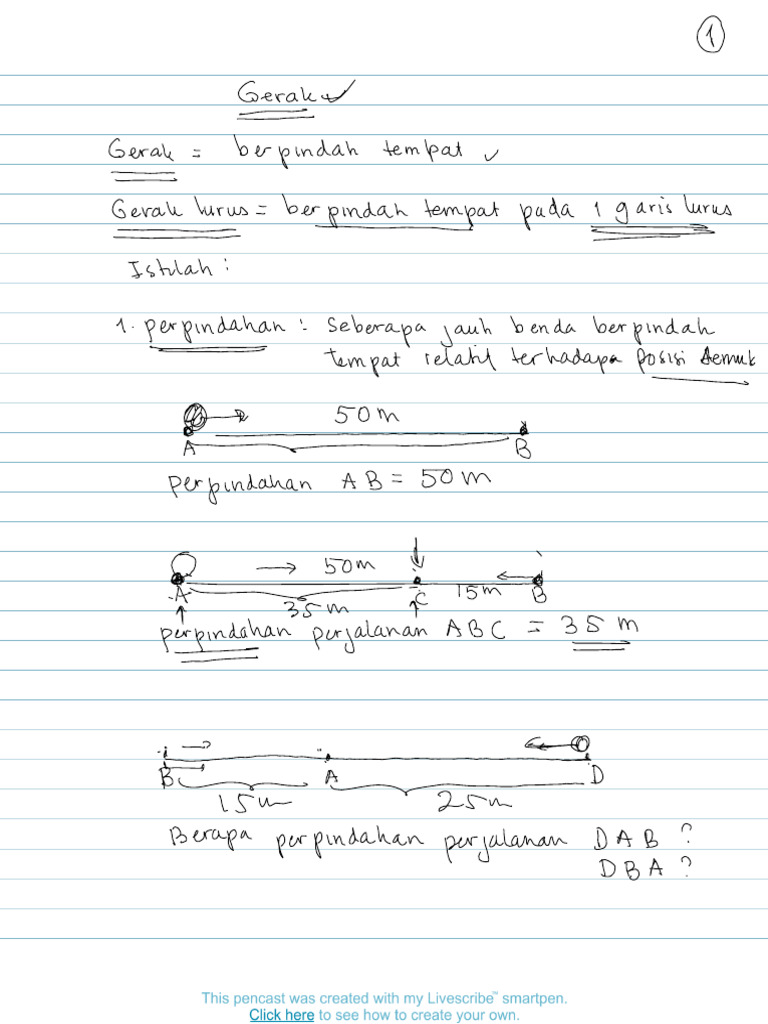 1
Gerak
Gerak = berpindah tempat
Gerak lurus = berpindah tempat pada 1 garis lurus
Istilah :
1. perpindahan : seberapa jauh benda berpindah
tempat relatif terhadapa posisi semula
50 m
A B
perpindahan AB = 50 m
50 m
A C 15 m B
35 m
perpindahan perjalanan ABC = 35 m
B A D
15 m 25 m
Berapa perpindahan perjalanan DAB ?
DBA ?
This pencast was created with my Livescribe™ smartpen.
Click here to see how to create your own.